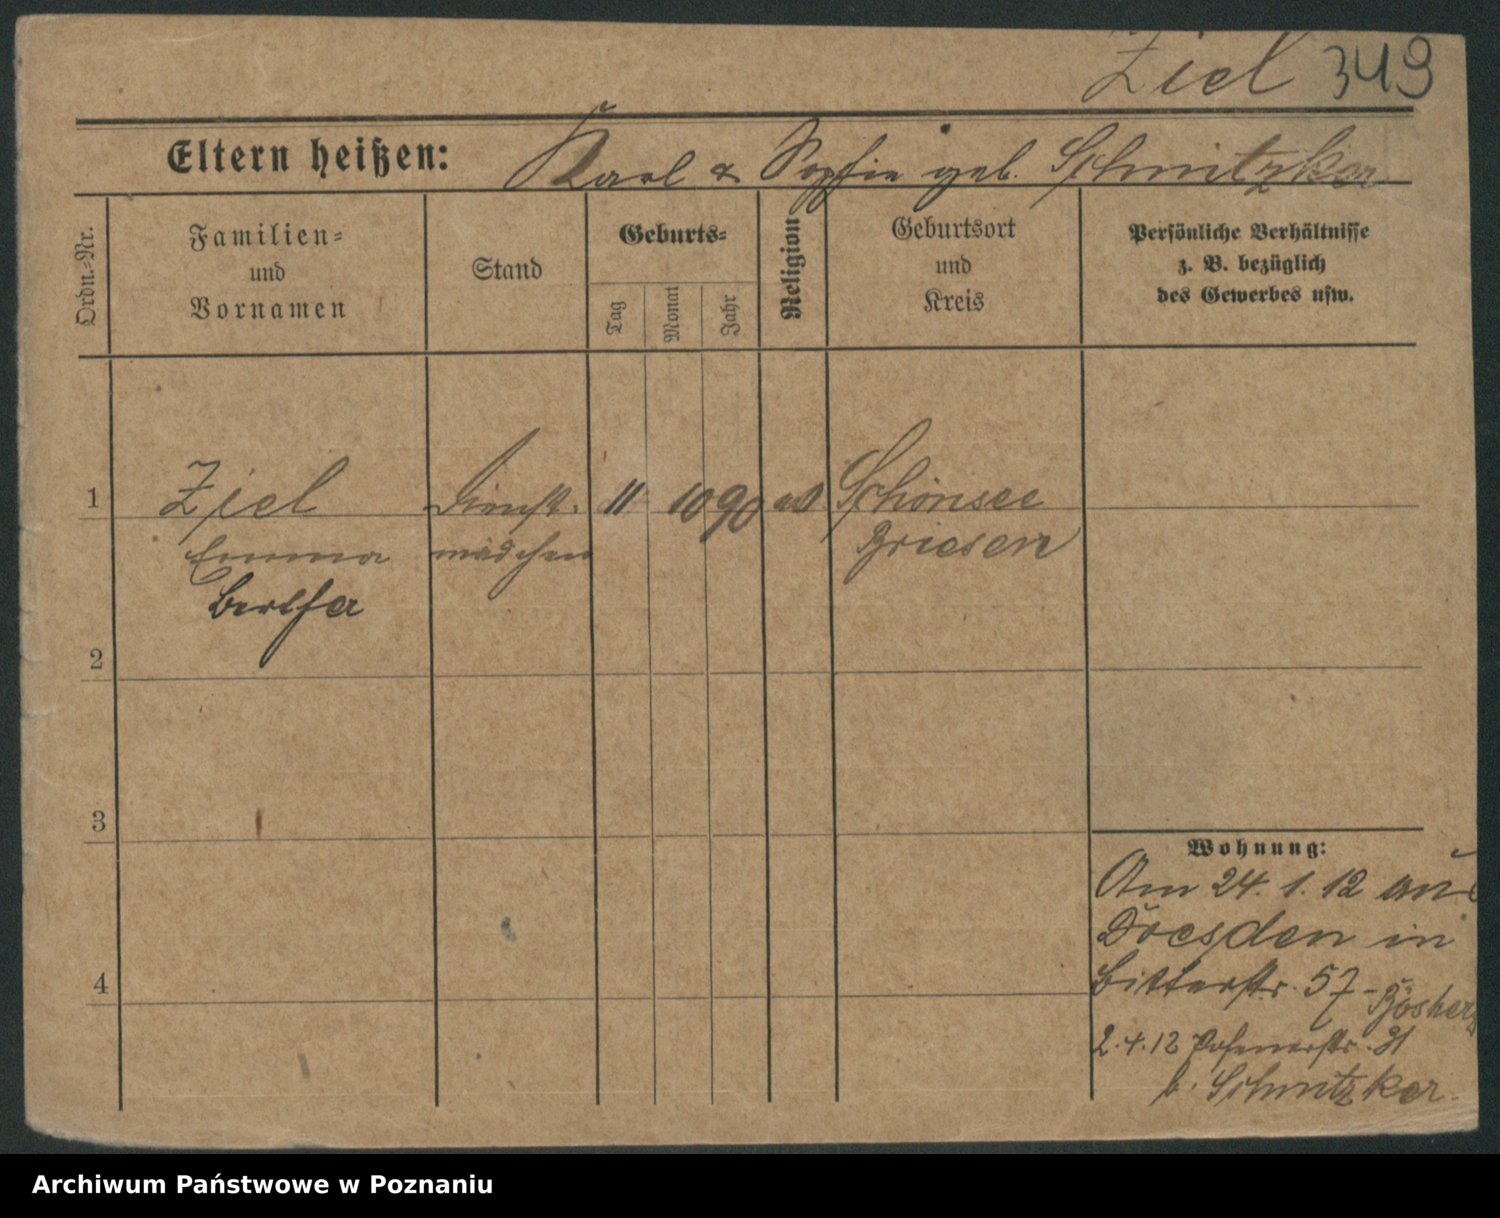 Ziel 349
Eltern heißen: Karl & Sophie geb. Schmitzker
Ordn.=Nr.
Familien=
und
Vornamen
Stand
Geburts=
Tag
Monat
Jahr
Religion
Geburtsort
und
Kreis
Persönliche Verhältnisse
z. B. bezüglich
des Gewerbes usw.
1 Ziel Dienst= 11 10 90 Schönsee
Emma mädchen Briesen
Bertha
2
3
4
Wohnung:
Am 24. 1. 12 aus
Dresden in
Bitterstr. 57 -
2.4.12 Posenerstr. 31
b. Schmitzker.